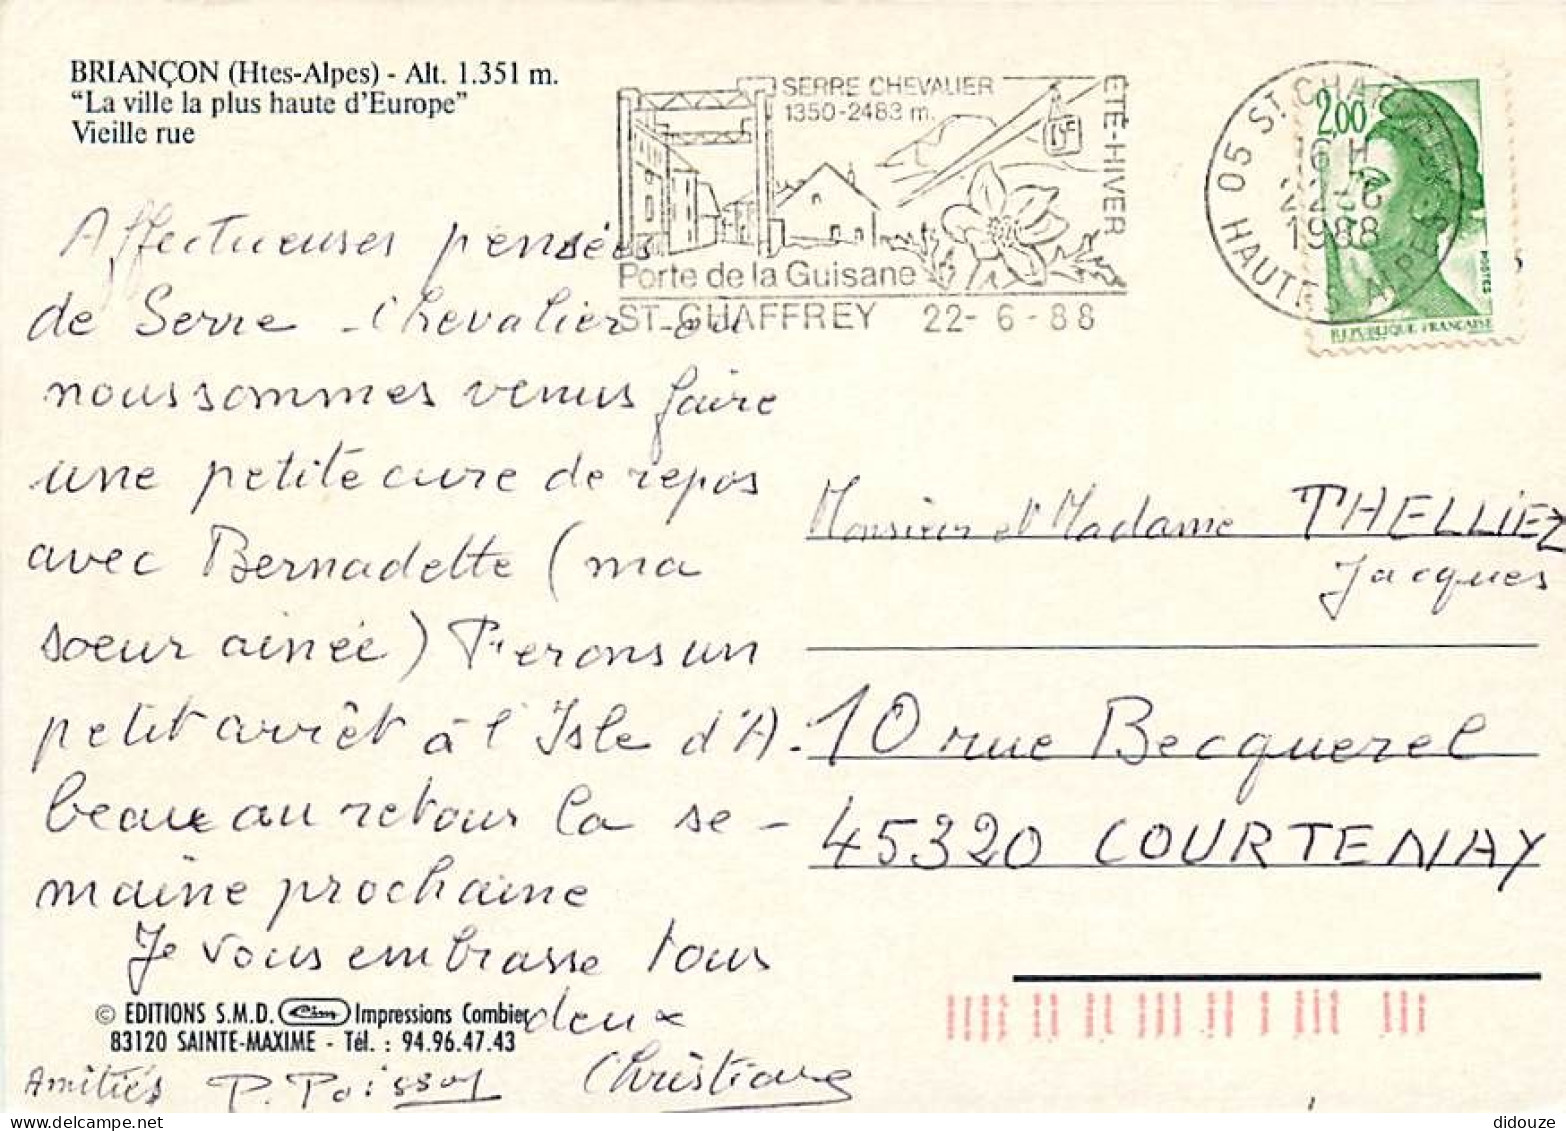 BRIANÇON (Htes-Alpes) - Alt. 1.351 m.
“La ville la plus haute d’Europe”
Vieille rue
SERRE CHEVALIER
1350-2483 m.
ETE-HIVER
Porte de la Guisane
ST-CHAFFREY 22-6-88
05 ST CHAFFREY
16 H
22-6
1988
HAUTES ALPES
2,00
POSTES
REPUBLIQUE FRANÇAISE
Affectueuses pensées
de Serre-Chevalier où
nous sommes venus faire
une petite cure de repos
avec Bernadette (ma
soeur ainée) Ferons un
petit arrêt à l'Isle d'A-
beau au retour la se-
maine prochaine
Je vous embrasse tous
deux
Christiane
Amitiés P. Poisson
Monsieur et Madame THELLIEZ
Jacques
10 rue Becquerel
45320 COURTENAY
© EDITIONS S.M.D. Cim Impressions Combier
83120 SAINTE-MAXIME - Tél. : 94.96.47.43
didouze